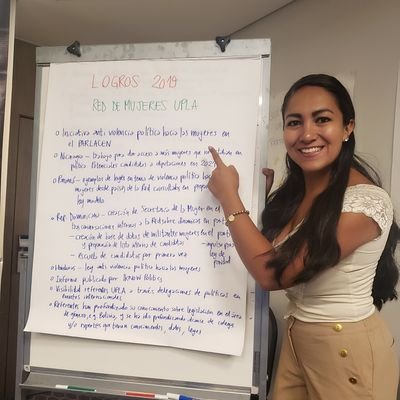 LOGROS 2019
RED DE MUJERES UPLA
o Iniciativa anti violencia política hacia las mujeres en
el PARLACEN
o Nicaragua - trabajo para dar acceso a más mujeres que
política. Potenciales candidatas a diputaciones en 2021
o Panamá - ejemplos de leyes en tema de violencia política hacia
mujeres desde países de la Red consultados en
ley modelo
o Rep. Dominicana - creación de Secretaría de la Mujer en el
Dos conversaciones internas a la Red sobre dinámicas en
- creación de base de datos de militantes mujeres en el partido
y propuesta de lista alterna de candidatas
- impulso
ley de
paridad
- escuela de candidatas por primera vez
o Honduras - ley anti violencia política hacia las mujeres
o Informe publicado por iKNOW Politics
o Visibilidad referentes UPLA a través delegaciones de políticas en
eventos internacionales
o Referentes han profundizado su conocimiento sobre legislación en el área
de género, ej. Bolivia, y se ha ido profundizando técnica de colegas
y/o expertas que tienen conocimientos, datos, leyes